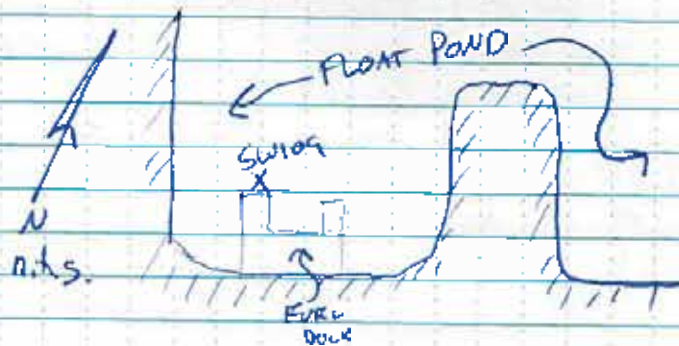 FLOAT POND
SW109
X
N
n.t.s.
FUEL
DOCK